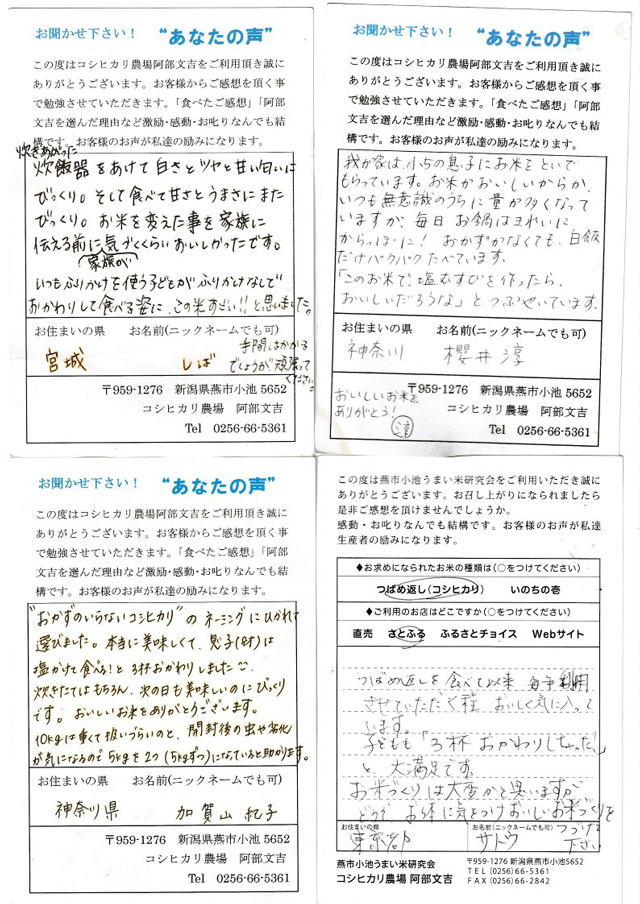 お聞かせ下さい！ “あなたの声”
この度はコシヒカリ農場阿部文吉をご利用頂き誠に
ありがとうございます。お客様からご感想を頂く事
で勉強させていただきます。「食べたご感想」「阿部
文吉を選んだ理由など激励・感動・お叱りなんでも結
構です。お客様のお声が私達の励みになります。
炊きあがった
炊飯器をあけて白さとツヤと甘い匂いに
びっくり。そして食べて甘さとうまさにまた
びっくり。お米を変えた事を家族に
伝える前に気づくくらいおいしかったです。
家族が
いつもふりかけを使う子どもがふりかけなしで
おかわりして食べる姿に、この米すごい!!と思いました。
お住まいの県 お名前(ニックネームでも可)
宮城 しば
手間はかかる
でしょうが頑張って
ください。
〒959-1276 新潟県燕市小池 5652
コシヒカリ農場 阿部文吉
Tel 0256-66-5361
お聞かせ下さい！ “あなたの声”
この度はコシヒカリ農場阿部文吉をご利用頂き誠に
ありがとうございます。お客様からご感想を頂く事
で勉強させていただきます。「食べたご感想」「阿部
文吉を選んだ理由など激励・感動・お叱りなんでも結
構です。お客様のお声が私達の励みになります。
我が家は、小5の息子にお米をといで
もらっています。お米がおいしいからか、
いつも無意識のうちに量が多くなって
いますが、毎日お鍋はきれいに
からっぽに！おかずがなくても、白飯
だけでパクパクたべています。
「このお米で、塩むすびを作ったら、
おいしいだろうな」とつぶやいています。
お住まいの県 お名前(ニックネームでも可)
神奈川 櫻井 淳
〒959-1276 新潟県燕市小池 5652
コシヒカリ農場 阿部文吉
Tel 0256-66-5361
おいしいお米を
ありがとう！
お聞かせ下さい！ “あなたの声”
この度はコシヒカリ農場阿部文吉をご利用頂き誠に
ありがとうございます。お客様からご感想を頂く事
で勉強させていただきます。「食べたご感想」「阿部
文吉を選んだ理由など激励・感動・お叱りなんでも結
構です。お客様のお声が私達の励みになります。
“おかずのいらないコシヒカリ”のネーミングにひかれて
選びました。本当に美味しくて、息子(8才)は
塩かけて食べる！と3杯おかわりしました
炊きたてはもちろん、次の日も美味しいのにびっくり
です。おいしいお米をありがとうございます。
10kgは重くて扱いづらいのと、開封後の虫や劣化
が気になるので5kgを2つ(5kgずつ)になっていると助かります。
お住まいの県 お名前(ニックネームでも可)
神奈川県 加賀山 紀子
〒959-1276 新潟県燕市小池 5652
コシヒカリ農場 阿部文吉
Tel 0256-66-5361
この度は燕市小池うまい米研究会をご利用いただき誠に
ありがとうございます。お召し上がりになられましたら
是非ご感想を頂けませんでしょうか。
感動・お叱りなんでも結構です。お客様のお声が私達
生産者の励みになります。
◆お求めになられたお米の種類は(○をつけてください)
つばめ返し(コシヒカリ) いのちの壱
◆ご利用のお店はどこですか(○をつけてください)
直売 さとふる ふるさとチョイス Webサイト
つばめ返しを食べて以来 毎年利用
させていただく程、おいしく気に入って
います。
子どもも「3杯おかわりしちゃった」
と、大満足です。
お米づくりは大変かと思いますが
どうぞ、お体に気をつけおいしいお米づくりを
つづけて
下さい
お住まいの県 お名前(ニックネームでも可)
東京都 サトウ
燕市小池うまい米研究会
コシヒカリ農場 阿部文吉
〒959-1276 新潟県燕市小池5652
TEL (0256) 66-5361
FAX (0256) 66-2842